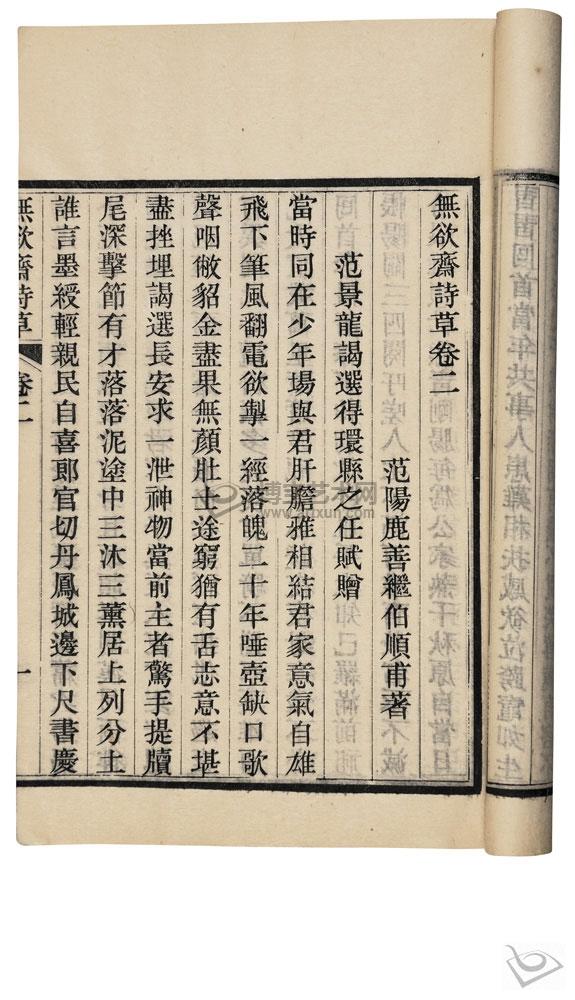 無欲齋詩草卷二
范陽鹿善繼伯順甫著
范景龍謁選得環縣之任賦贈
當時同在少年場與君肝膽雅相結君家意氣自雄
飛下筆風翻電欲掣一經落魄二十年唾壺缺口歌
聲咽敝貂金盡果無顏壯士途窮猶有舌志意不堪
盡挫埋謁選長安求一泄神物當前主者驚手提牘
尾深擊節有才落落泥塗中三沐三薰居上列分土
誰言墨綬輕親民自喜郎官切丹鳳城邊下尺書慶
無欲齋詩草
卷二
一
博宝艺术网